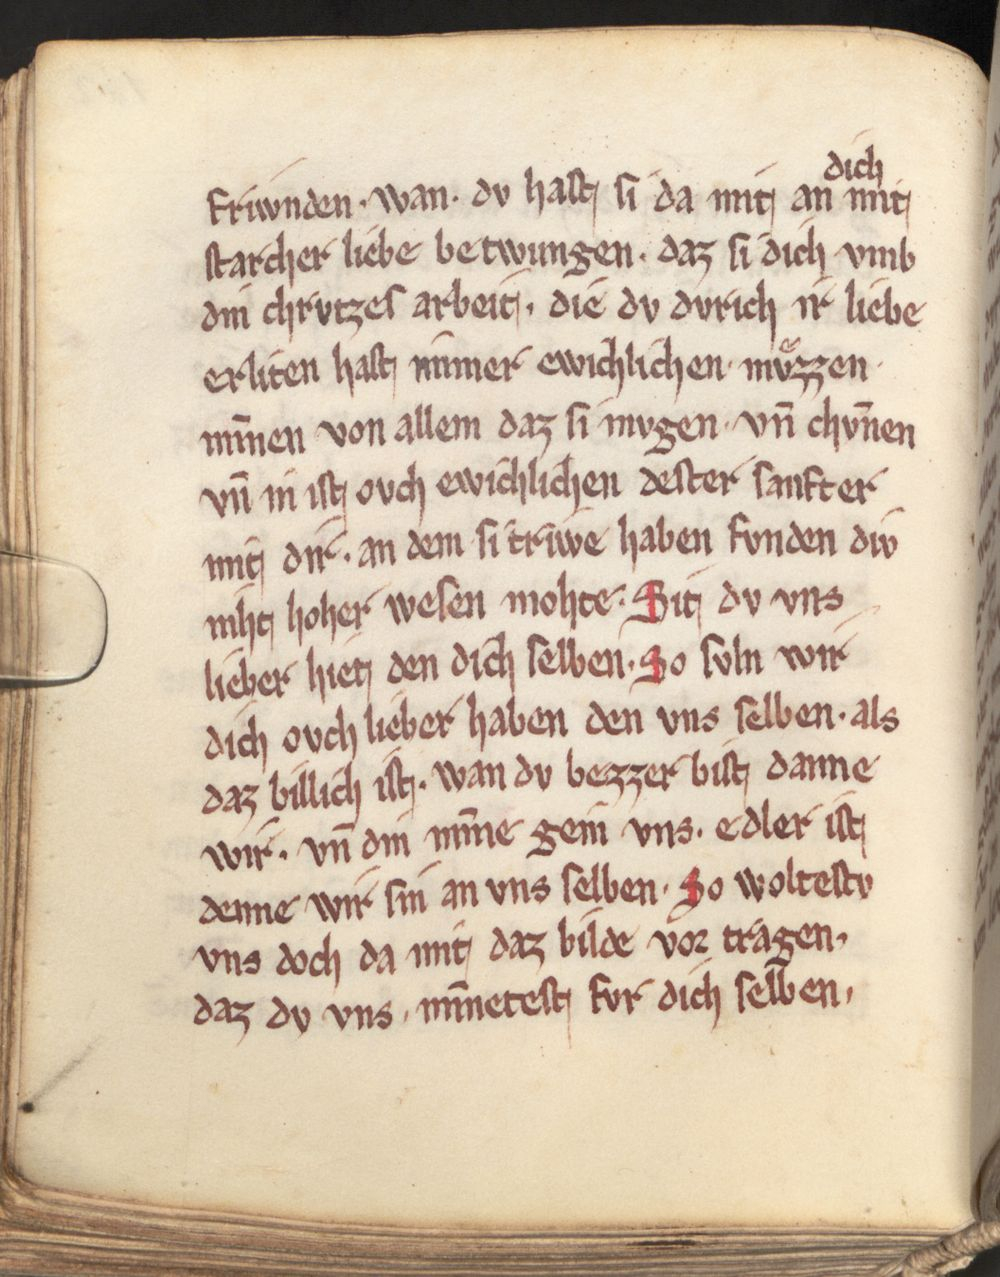 dich
friwnden · wan · dv hast si da mit an mit
starcher liebe betwungen · daz si dich vmb
din chrvtzes arbeit · die dv dvrich ir liebe
erliten hast immer ewichlichen · mvͤzzen ·
mīnen von allem daz si mvgen · vn̄ chvn̄en
vn̄ in ist ovch ewichlichen dester sanfter
mit dir · an dem si triwe haben fvnden div
niht hoher wesen mohte · Sit dv vns
lieber hiet den dich selben · So svln wir
dich ovch lieber haben den vns selben · als
daz billich ist · wan dv bezzer bist danne
wir · vn̄ din mīne gein vns · edler ist
denne wir sin an vns selben · So woltestv
vns doch da mit daz bilde vor tragen ·
daz dv vns · mīnetest fvr dich selben ·